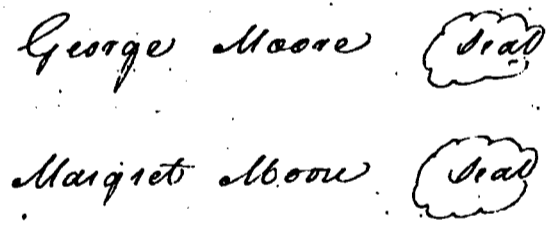 George Moore Seal
Margret Moore Seal